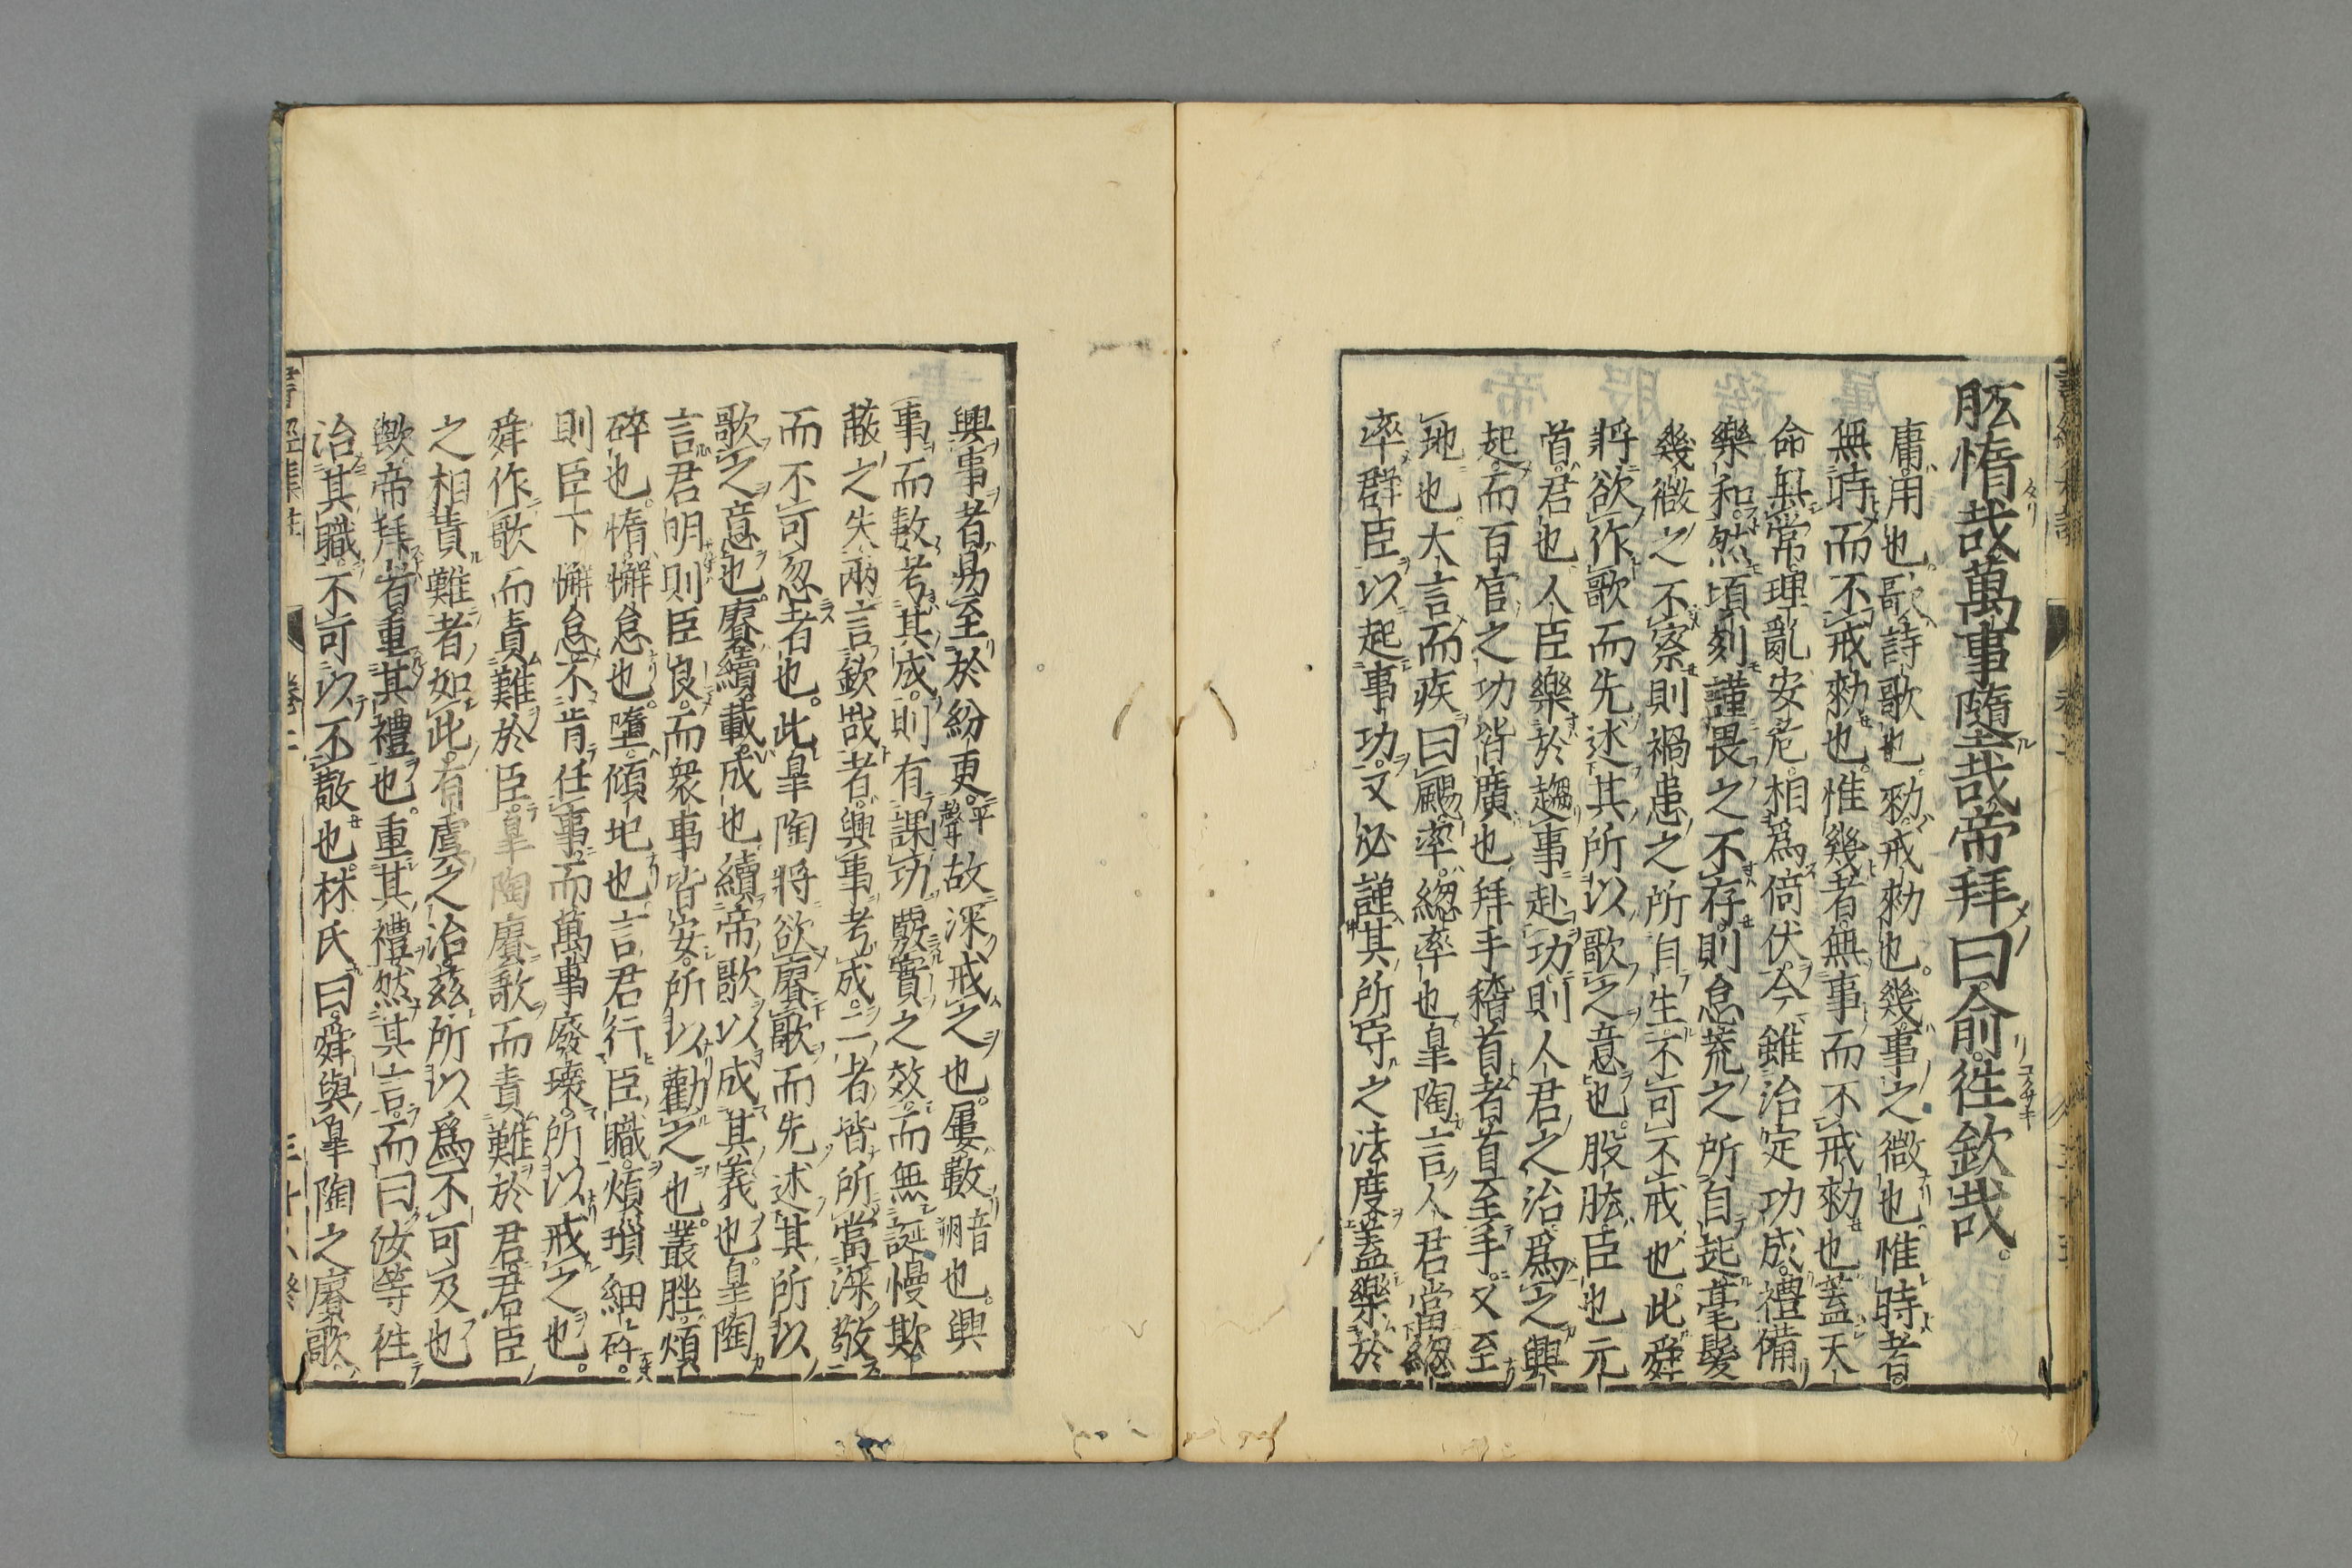 肱惰哉萬事隨哉帝拜曰俞徃欽哉
庸用也歌詩歌也勑戒勑也幾事之微也惟時者
無時而不戒勑也惟幾者無事而不戒勑也蓋天
命無常理亂安危相爲倚伏今雖治定功成禮備
樂和然頃刻謹畏之不存則怠荒之所自起毫髮
幾微之不察則禍患之所自生不可不戒也此舜
將欲作歌而先述其所以歌之意也股肱臣也元
首君也人臣樂於趨事赴功則人君之治爲之興
起而百官之功皆廣也拜手稽首者首至手又至
地也大言而疾曰颺率緫率也皐陶言人君當緫
率群臣以起事功又必謹其所守之法度蓋樂於
興事者易至於紛更平聲故深戒之也屢數音朔也興
事而數考其成則有課功覈實之效而無誕慢欺
蔽之失兩言欽哉者興事考成二者皆所當深敬
而不可忽者也此皐陶將欲賡歌而先述其所以
歌之意也賡續載成也續帝歌以成其義也皐陶
言君明則臣良而衆事皆安所以勸之也叢脞煩
碎也惰懈怠也墮傾圮也言君行臣職煩瑣細碎
則臣下懈怠不肯任事而萬事廢壞所以戒之也
舜作歌而責難於臣皐陶賡歌而責難於君君臣
之相責難者如此有虞之治茲所以爲不可及也
歟帝拜者重其禮也重其禮然其言而曰汝等徃
治其職不可以不敬也林氏曰舜與皐陶之賡歌